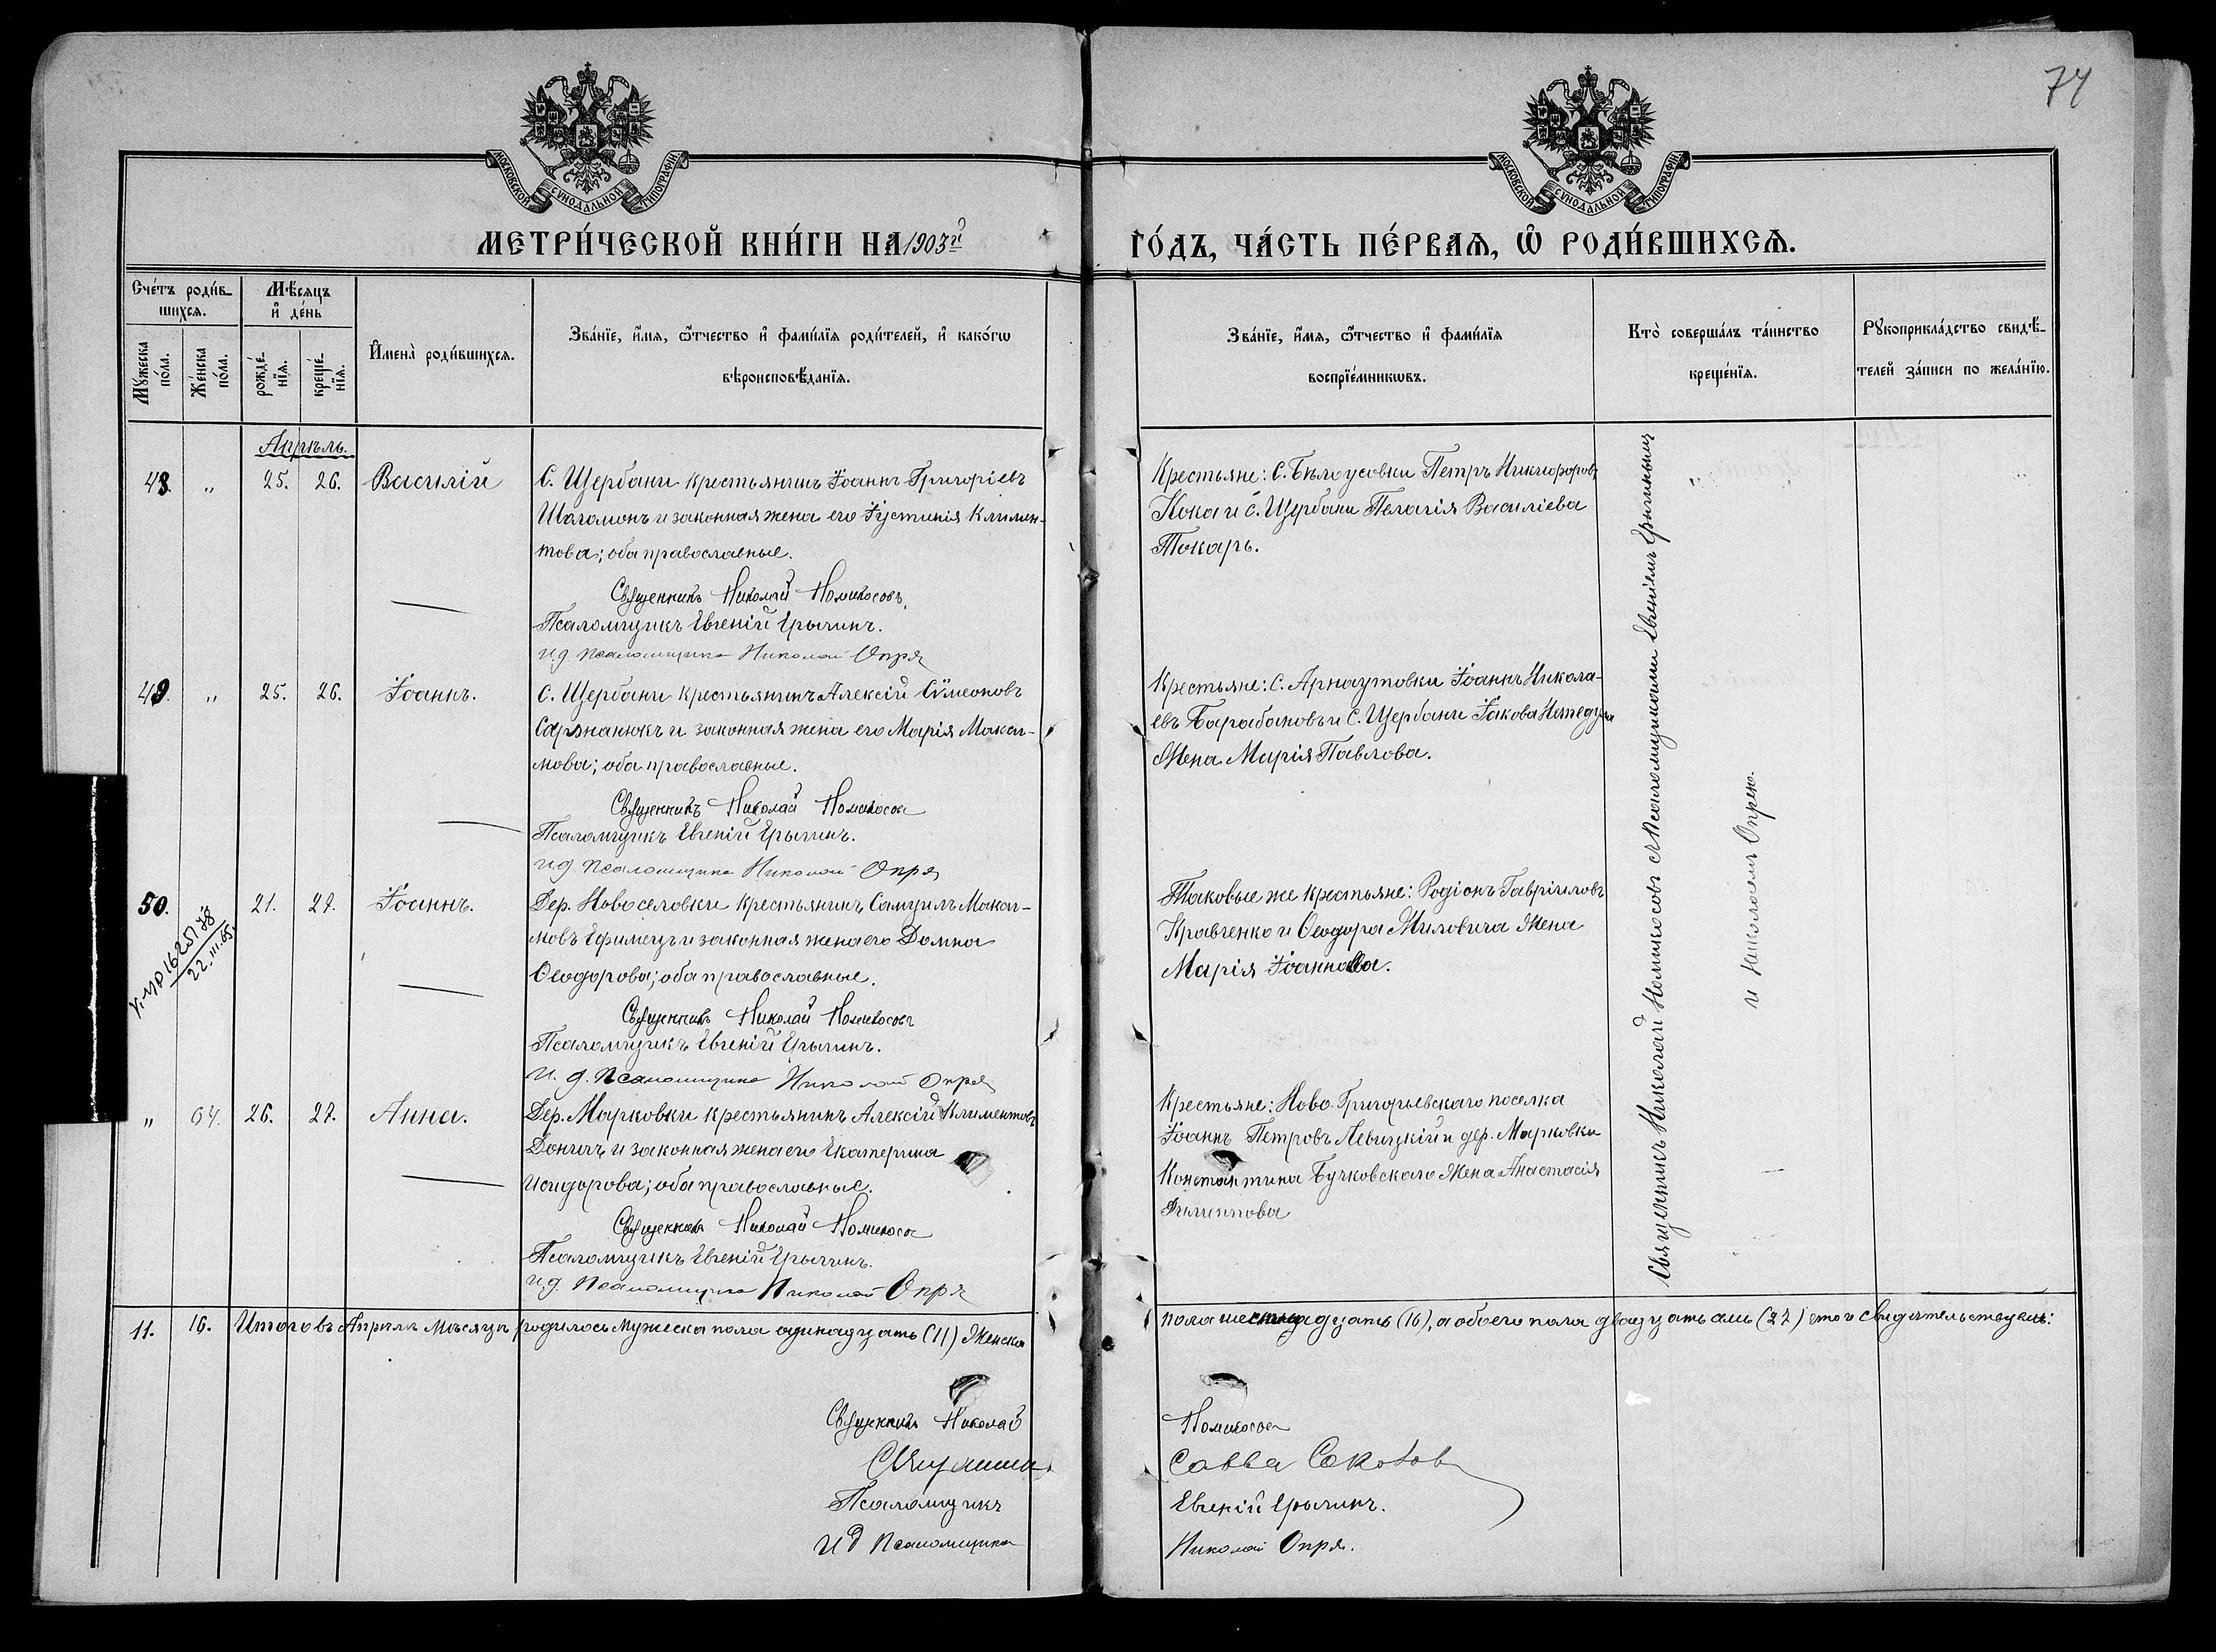 74
МОСКОВСКОЙ СѴНОДАЛЬНОЙ ТИПОГРАФІИ
МОСКОВСКОЙ СѴНОДАЛЬНОЙ ТИПОГРАФІИ
МЕТРИ́ЧЕСКОЙ КНИ́ГИ НА 1903й
ГО́ДЪ, ЧА́СТЬ ПЕ́РВАЯ, Ѡ҆ РОДИ́ВШИХСЯ.
Сче́тъ роди́в-
шихся.
Мꙋжеска по́ла.
Же́нска по́ла.
Мѣ́сяцъ
и҆ де́нь
рожде́-
нїя.
креще́-
нїя.
И҆мена̀ роди́вшихся.
Зва́нїе, и҆́мя, ѻ҆́тчество и҆ фами́лїя роди́телей, и҆ како́гѡ
вѣроисповѣ́данїя.
Зва́нїе, и҆́мя, ѻ҆́тчество и҆ фами́лїя
воспрїе́мникѡвъ.
Кто̀ соверша́лъ та́инство
креще́нїя.
Рꙋкоприкла́дство свидѣ́-
телей за́писи по жела́нїю.
Апрѣль.
48. „ 25. 26. Василій
С. Щербани крестьянинъ Іоаннъ Григоріевъ
Шаломонъ и законная жена его Іустинія Климен-
това; оба православные.
Священникъ Николай Номикосовъ.
Псаломщикъ Евгеній Ерыгинъ.
И.д. псаломщика Николай Опря
Крестьяне: С. Бѣлоусовки Петръ Никифоровъ
Кока и с. Щербани Пелагія Василіева
Токарь.
49. „ 25. 26. Іоаннъ.
С. Щербани крестьянинъ Алексій Симеоновъ
Саржанюкъ и законная жена его Марія Макси-
мова; оба православные.
Священникъ Николай Номикосовъ
Псаломщикъ Евгеній Ерыгинъ.
И.д. псаломщика Николай Опря
Крестьяне: С. Арнаутовки Іоаннъ Никола-
евъ Барабановъ и С. Щербани Іакова
Жена Марія Павлова.
50. 21. 27. Іоаннъ.
22.III.65.
Дер. Новоселовки крестьянинъ Самуилъ Макси-
мовъ Ефимецъ и законная жена его Домна
Ѳеодорова; оба православные.
Священникъ Николай Номикосовъ
Псаломщикъ Евгеній Ерыгинъ.
И. д. псаломщика Николай Опря
Таковые же крестьяне: Родіонъ Гавріиловъ
Кравченко и Ѳеодора Миловича Жена
Марія Іоаннова.
„ 64. 26. 27. Анна.
Дер. Марковки крестьянинъ Алексій Климентовъ
Дончъ и законная жена его Екатерина
Исидорова; оба православные.
Священникъ Николай Номикосовъ
Псаломщикъ Евгеній Ерыгинъ.
И.д. псаломщика Николай Опря
Крестьяне: Ново-Григорьевскаго поселка
Іоаннъ Петровъ Левицкій и дер. Марковки
Константина Бучковскаго Жена Анастасія
Филиппова
Священникъ Николай Номикосовъ съ псаломщиками Евгеніемъ Ерыгинымъ
и Николаемъ Опрею.
11. 16. Итого въ Апрѣлѣ мѣсяцѣ родилось мужеска пола одинадцать (11) Женска
пола шестнадцать (16), а обоего пола двадцать семь (27) въ томъ свидѣтельствуемъ:
Священникъ Николай Номикосовъ
Священникъ Савва Соколовъ
Псаломщикъ Евгеній Ерыгинъ.
И д псаломщика Николай Опря.